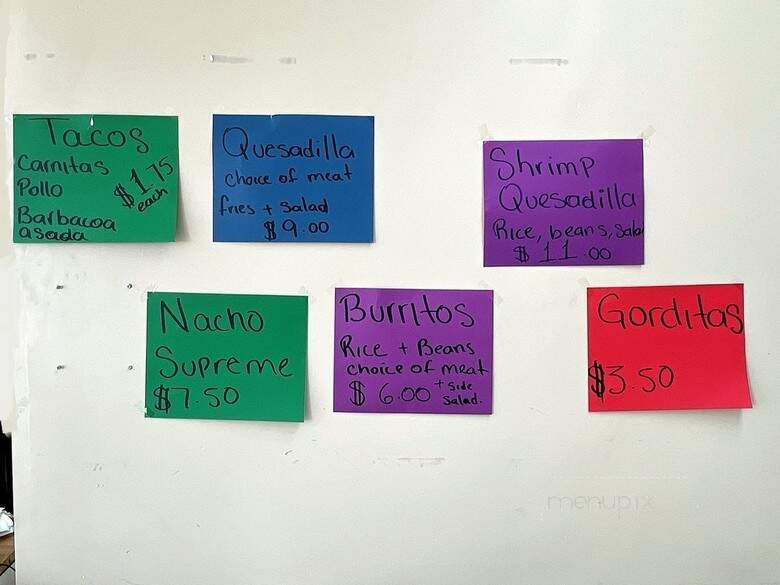 Tacos
Carnitas
Pollo
Barbacoa
asada
$1.75
each
Quesadilla
choice of meat
fries + salad
$9.00
Shrimp
Quesadilla
Rice, beans, Sala
$11.00
Nacho
Supreme
$7.50
Burritos
Rice + Beans
choice of meat
$6.00 + side
salad.
Gorditas
$3.50
menupix